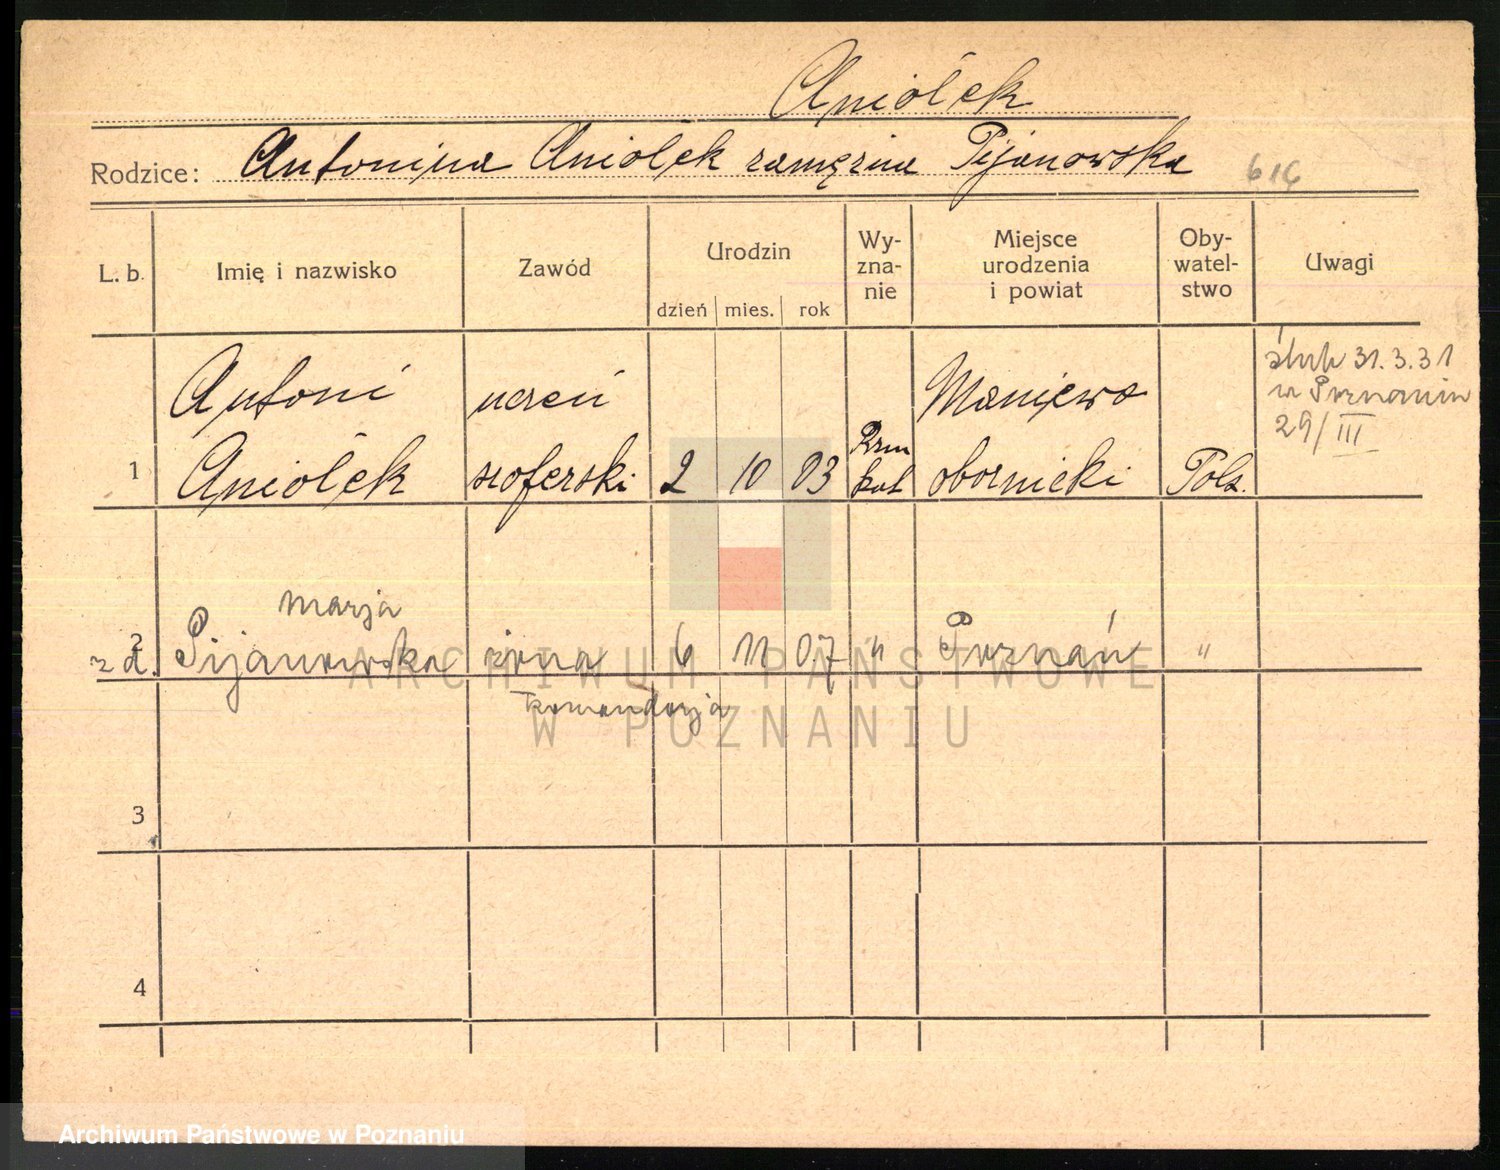 Aniołek
Rodzice: Antonina Aniołek zamężna Pijanowska 616
L. b. Imię i nazwisko Zawód Urodzin dzień mies. rok Wy-zna-nie Miejsce urodzenia i powiat Oby-watel-stwo Uwagi
Antoni uczeń Maniewo ślub 31.3.31
w Poznaniu
29/III
1 Aniołek szoferski 2 10 03 Rzm kat obornicki Pols.
Marja
2 z d. Pijanowska żona 6 11 07 " Poznań "
Komandorja
3
4
ARCHIWUM PAŃSTWOWE
W POZNANIU
Archiwum Państwowe w Poznaniu